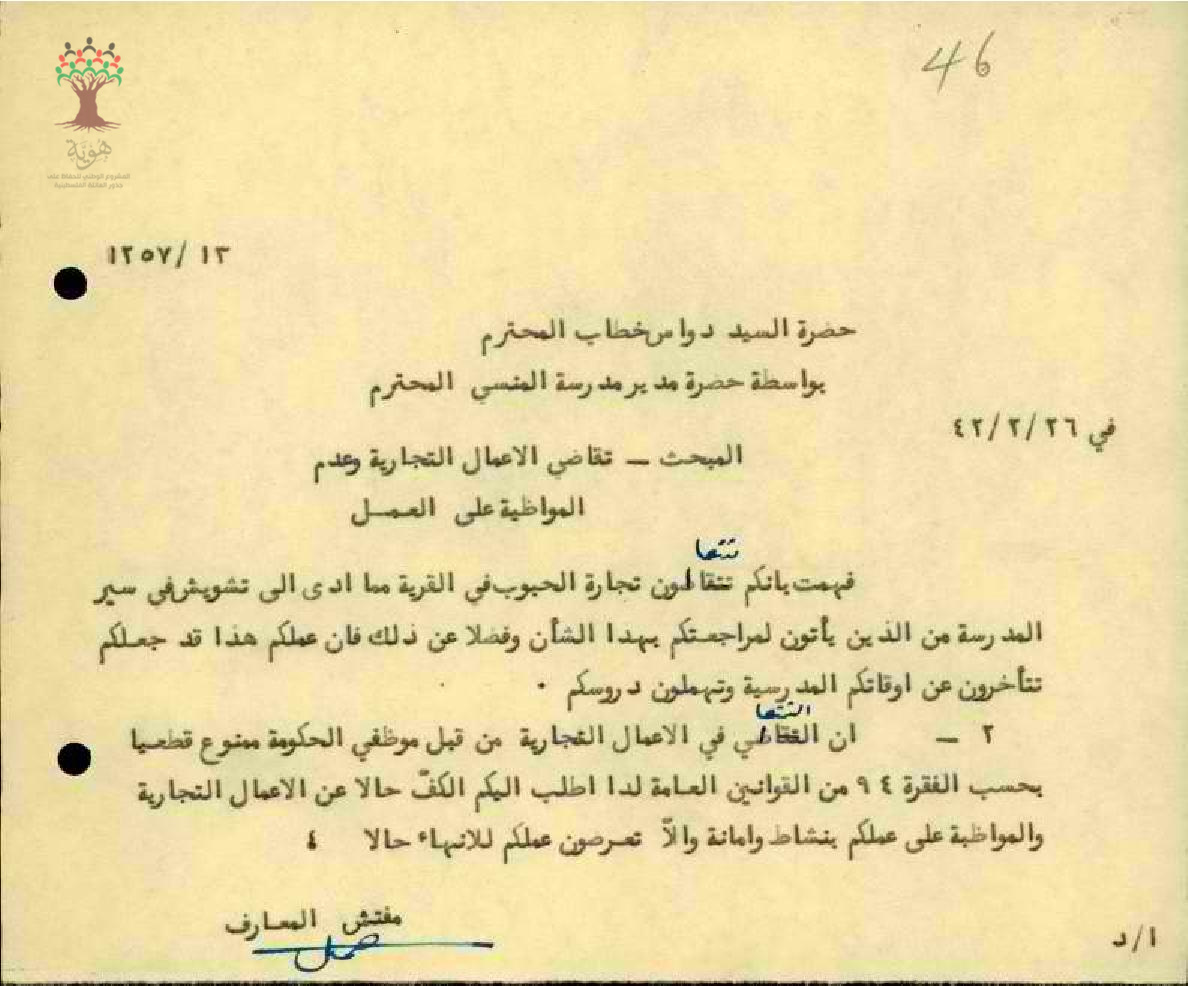 46
هوية
المشروع الوطني للحفاظ على
جذور العائلة الفلسطينية
١٣ /١٢٥٧
حضرة السيد دواس خطاب المحترم
بواسطة حضرة مدير مدرسة المنسي المحترم
في ٤٢/٢/٢٦
المبحث ــ تقاضي الاعمال التجارية وعدم
المواظبة على العمـل
تتعا
فهمت بانكم تتقاطون تجارة الحبوب في القرية مما ادى الى تشويش في سير
المدرسة من الذين يأتون لمراجعتكم بهذا الشأن وفضلا عن ذلك فان عملكم هذا قد جعلكم
تتأخرون عن اوقاتكم المدرسية وتهملون دروسكم ٠
التعا
٢ ــ ان التقاطي في الاعمال التجارية من قبل موظفي الحكومة ممنوع قطعيا
بحسب الفقرة ٩٤ من القوانين العامة لذا اطلب اليكم الكفّ حالا عن الاعمال التجارية
والمواظبة على عملكم بنشاط وامانة والاّ تعرضون عملكم للانهاء حالا ٤
مفتش المعارف
ا/د